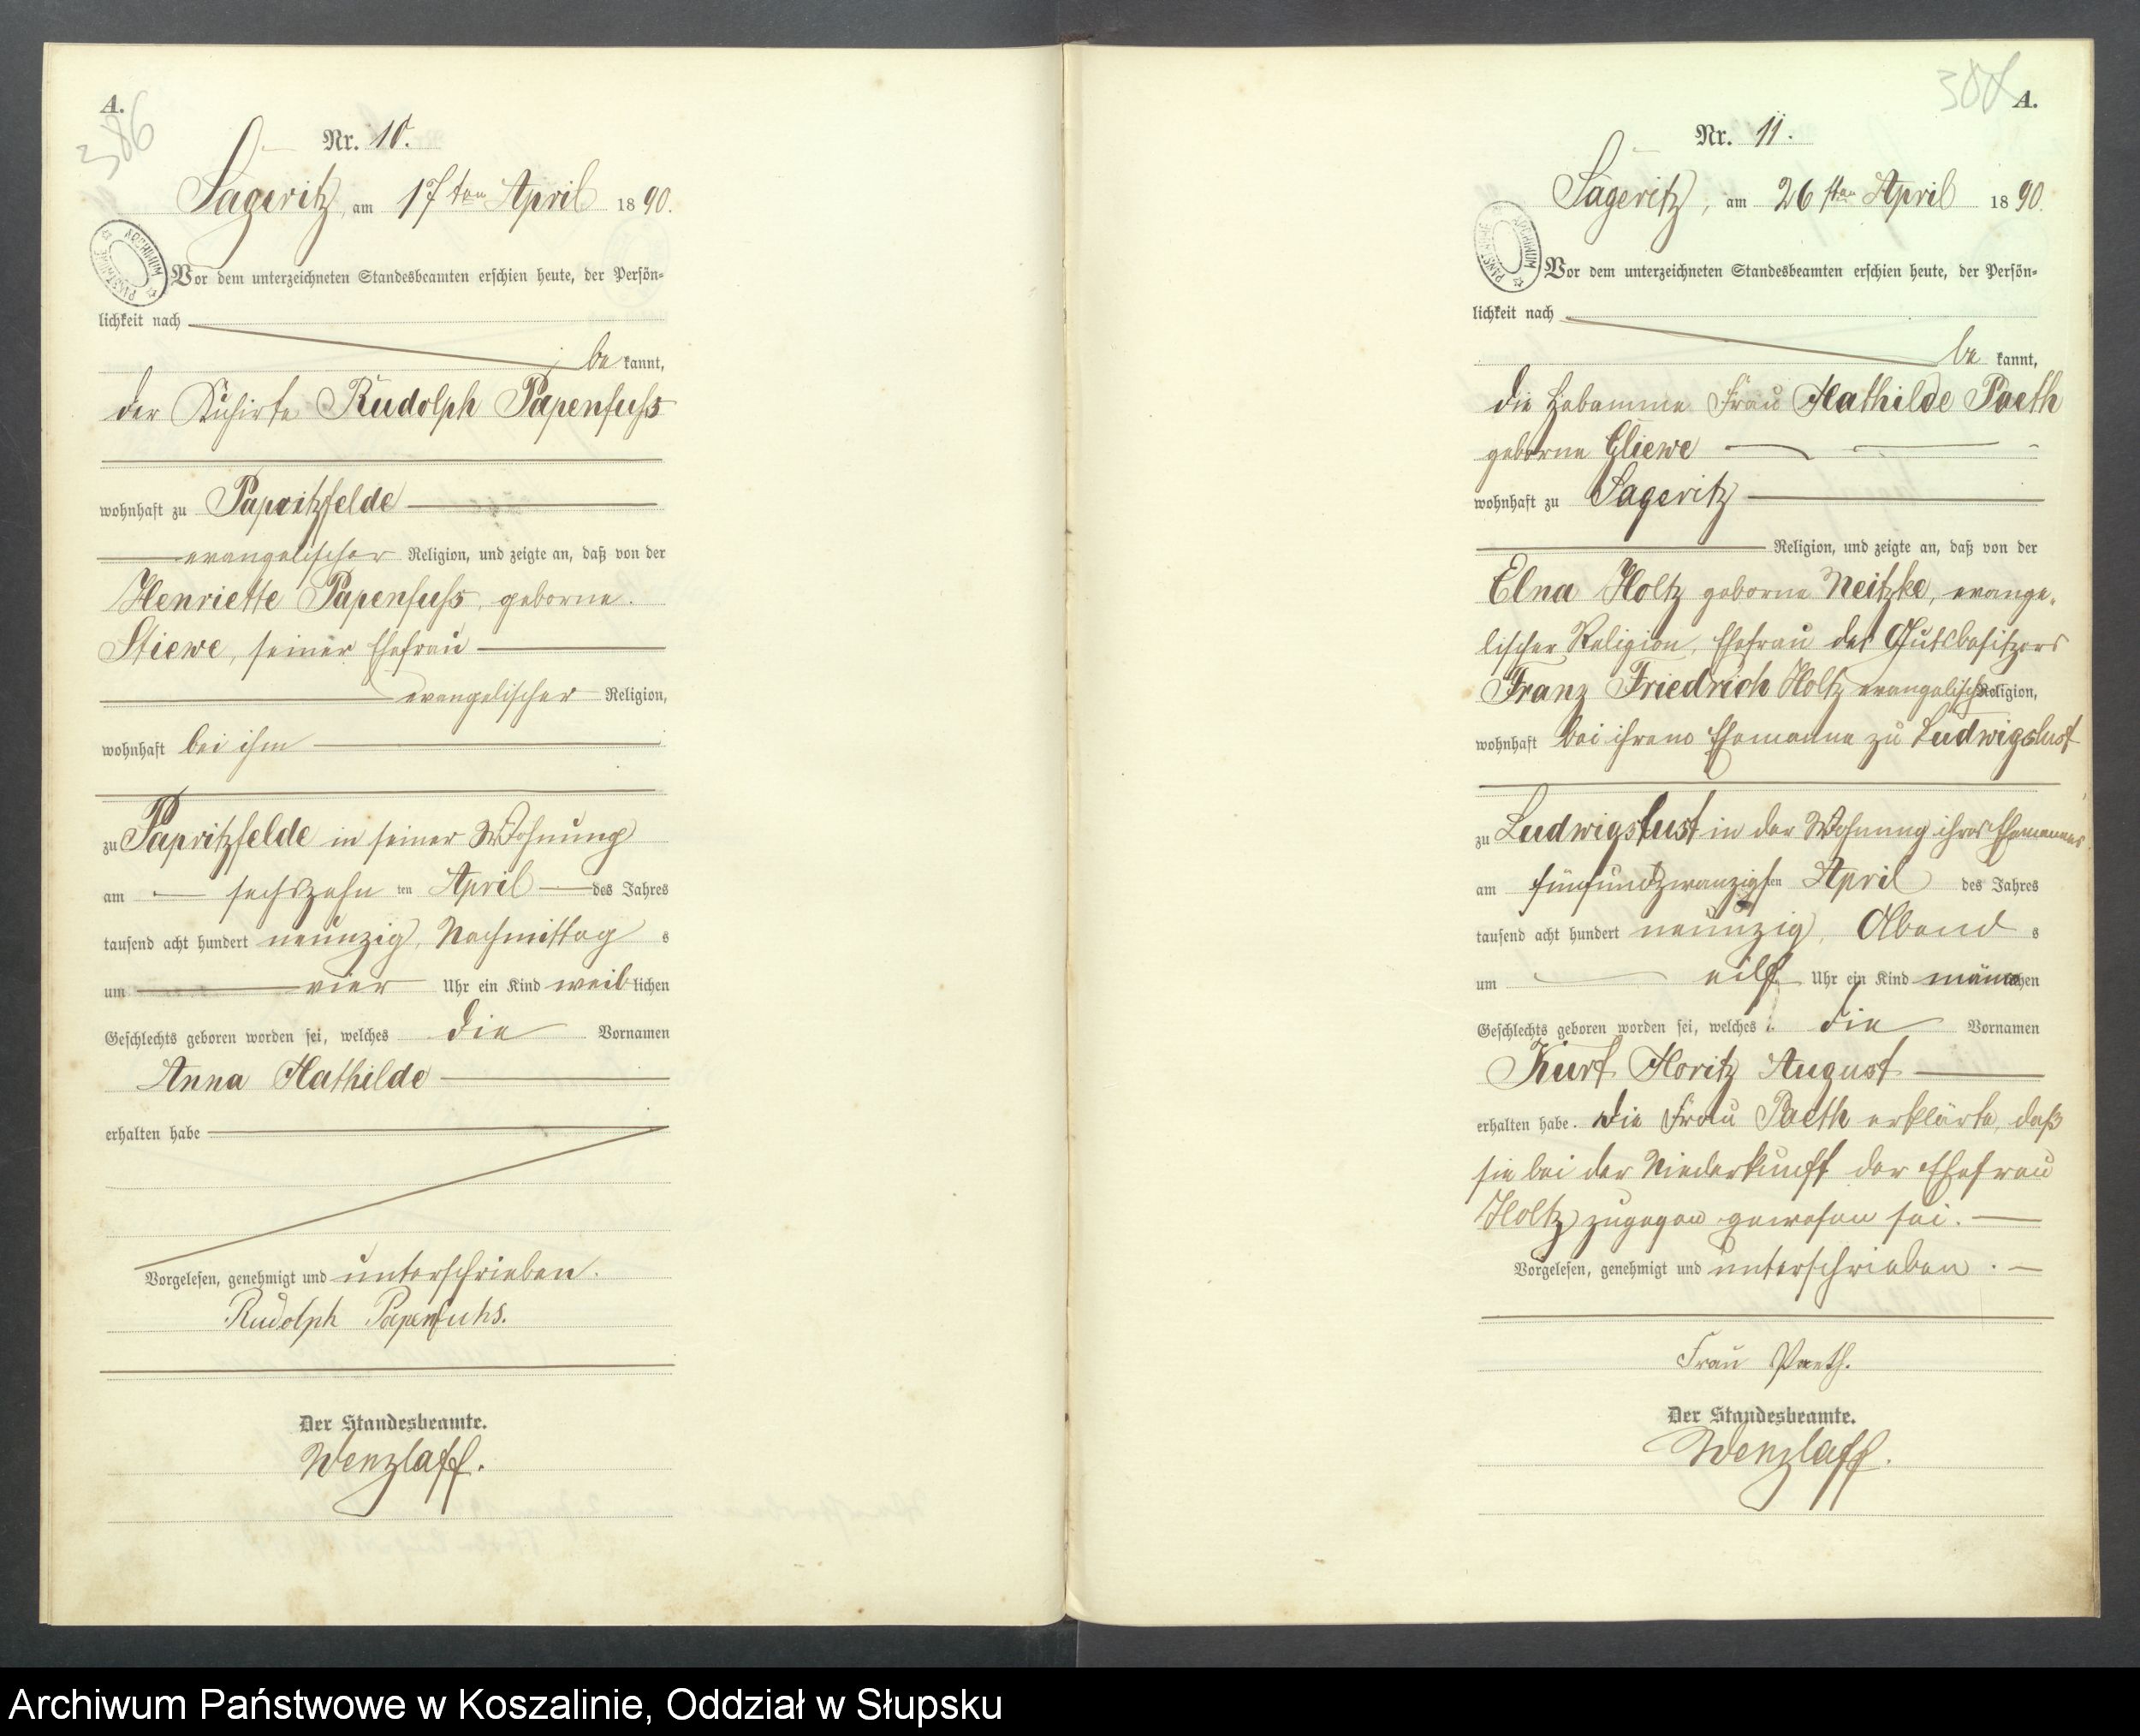 A.
386
Nr. 10.
Sageritz, am 17ten April 1890.
ARCHIWUM PAŃSTWOWE
Vor dem unterzeichneten Standesbeamten erschien heute, der Persön-
lichkeit nach
be kannt,
der Kuhirte Rudolph Papenfuss
wohnhaft zu Papritzfelde
evangelischer Religion, und zeigte an, daß von der
Henriette Papenfuss, geborne
Stiewe, seiner Ehefrau
evangelischer Religion,
wohnhaft bei ihm
zu Papritzfelde in seiner Wohnung
am sechszehn ten April des Jahres
tausend acht hundert neunzig, Nachmittag s
um vier Uhr ein Kind weib lichen
Geschlechts geboren worden sei, welches die Vornamen
Anna Mathilde
erhalten habe
Vorgelesen, genehmigt und unterschrieben.
Rudolph Papenfuhs.
Der Standesbeamte.
Wenzlaff.
A.
Nr. 11.
Sageritz, am 26sten April 1890.
ARCHIWUM PAŃSTWOWE
Vor dem unterzeichneten Standesbeamten erschien heute, der Persön-
lichkeit nach
be kannt,
die Hebamme Frau Mathilde Paeth
geborne Gliewe
wohnhaft zu Sageritz
Religion, und zeigte an, daß von der
Elna Holtz geborne Neitzke, evange-
lischer Religion, Ehefrau des Gutsbesitzers
Franz Friedrich Holtz evangelischer Religion,
wohnhaft bei ihrem Ehemanne zu Ludwigslust
zu Ludwigslust in der Wohnung ihres Ehemannes
am fünfundzwanzigsten April des Jahres
tausend acht hundert neunzig, Abend s
um eilf Uhr ein Kind männlichen
Geschlechts geboren worden sei, welches die Vornamen
Kurt Moritz August
erhalten habe. Die Frau Paeth erklärte, daß
sie bei der Niederkunft der Ehefrau
Holtz zugegen gewesen sei.
Vorgelesen, genehmigt und unterschrieben.
Frau Paeth.
Der Standesbeamte.
Wenzlaff.
Archiwum Państwowe w Koszalinie, Oddział w Słupsku